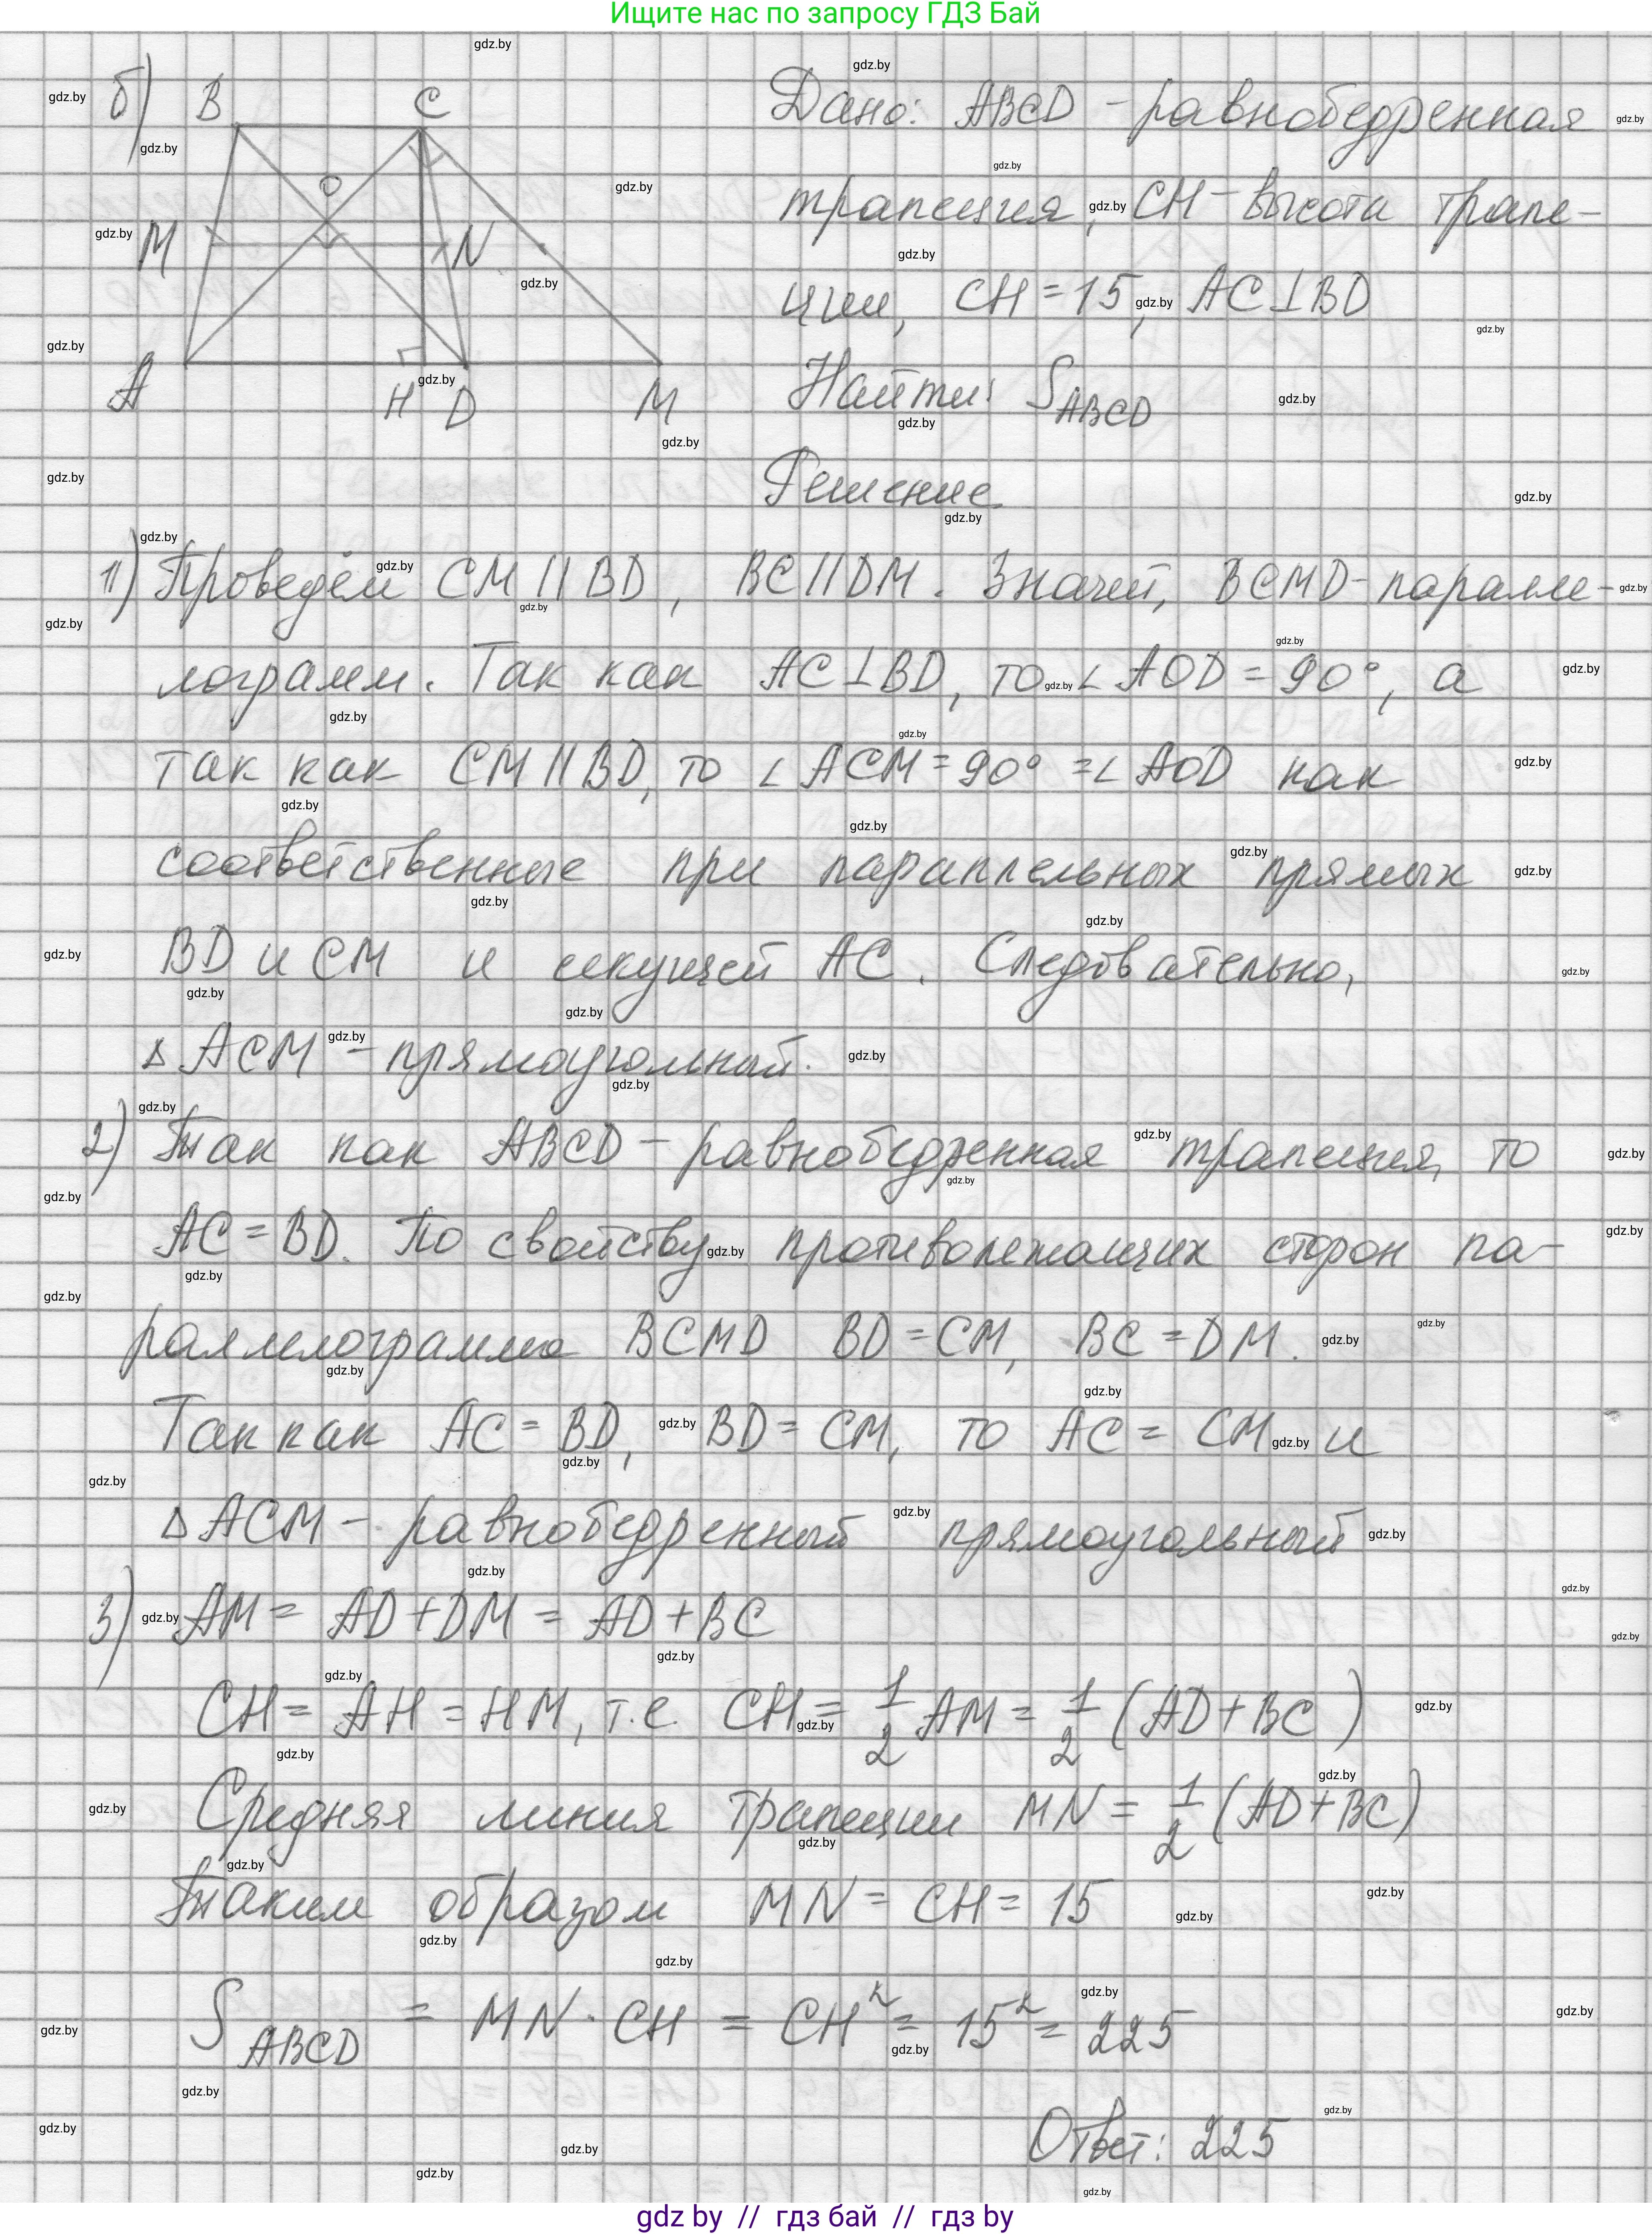 Ищите нас по запросу ГДЗ Бай
б) B C
O
M N
A H D M
Дано: ABCD - равнобедренная
трапеция, CH - высота трапе-
ции, CH = 15, AC⊥BD
Найти: S_ABCD
Решение
1) Проведём CM || BD, BC || DM. Значит, BCMD - паралле-
лограмм. Так как AC⊥BD, то ∠AOD = 90°, а
так как CM || BD, то ∠ACM = 90° = ∠AOD как
соответственные при параллельных прямых
BD и CM и секущей AC. Следовательно,
△ACM - прямоугольный.
2) Так как ABCD - равнобедренная трапеция, то
AC = BD. По свойству противолежащих сторон па-
раллелограмма BCMD BD = CM, BC = DM.
Так как AC = BD, BD = CM, то AC = CM и
△ACM - равнобедренный прямоугольный
3) AM = AD + DM = AD + BC
CH = AH = HM, т.е. CH = 1/2 AM = 1/2 (AD + BC)
Средняя линия трапеции MN = 1/2 (AD + BC)
Таким образом MN = CH = 15
S_ABCD = MN · CH = CH² = 15² = 225
Ответ: 225
gdz by // гдз бай // gdz by